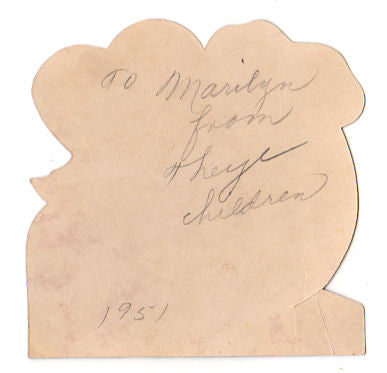 To Marilyn
from
children
1951